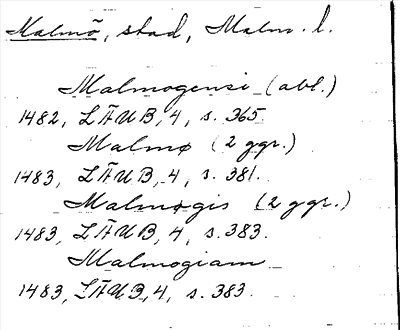 Malmö, stad, Malm. l.
Malmogensi (abl.)
1482, LÄUB, 4, s. 365.
Malmø (2 ggr.)
1483, LÄUB, 4, s. 381.
Malmøgis (2 ggr.)
1483, LÄUB, 4, s. 383.
Malmogiam
1483, LÄUB, 4, s. 383.